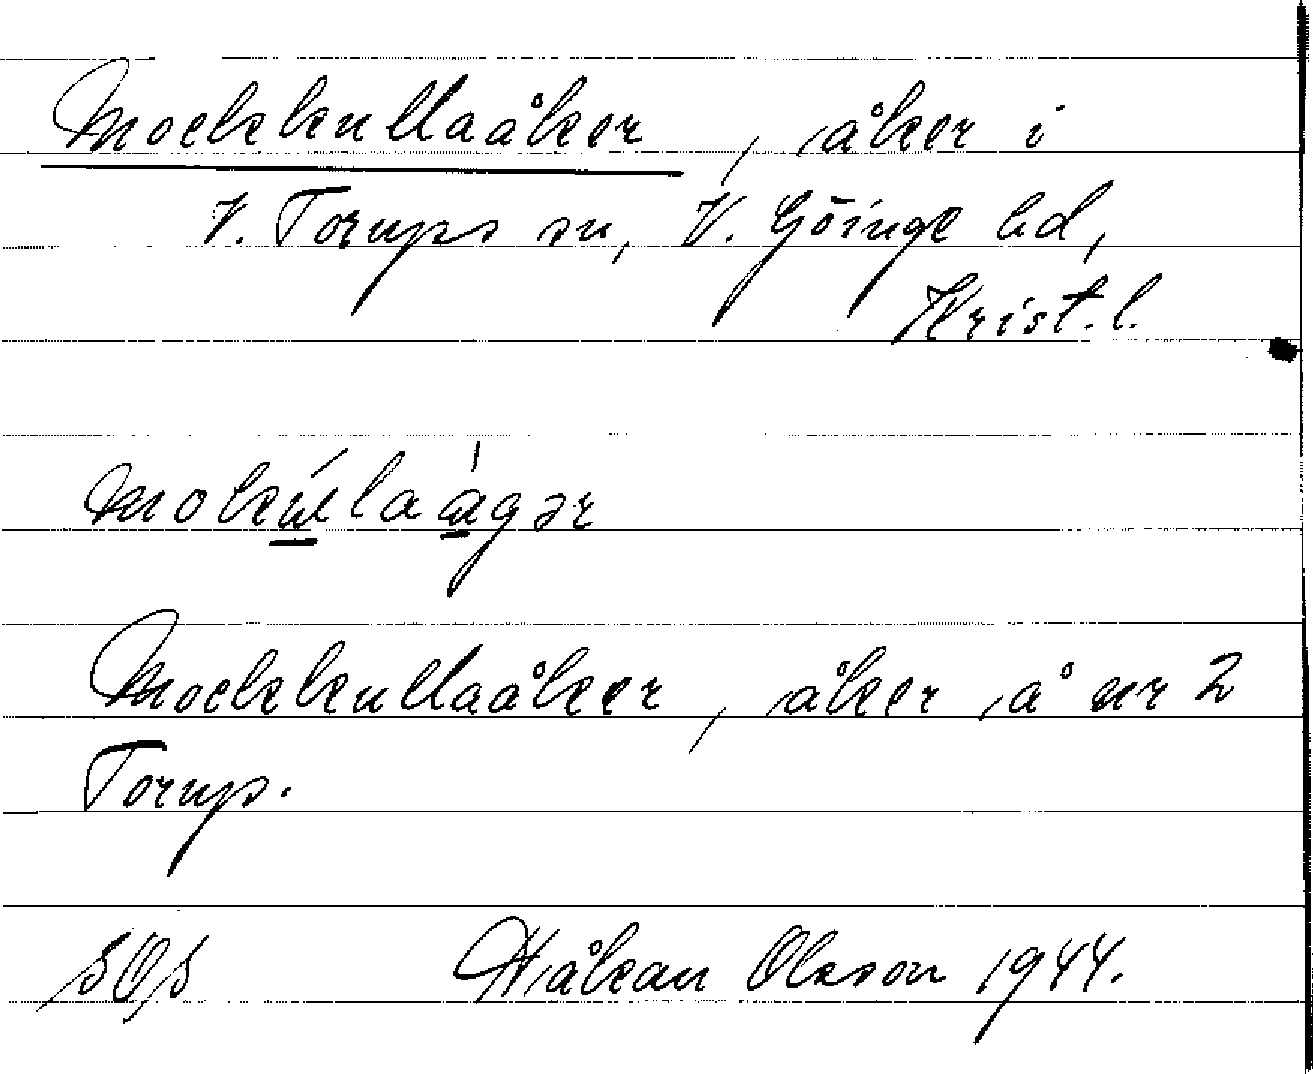 Mockkullaåker, åker i
V. Torups sn, V. Göinge hd,
Krist. l.
Mockkullaåker, åker å nr 2
Torup.
Håkan Olsson 1944.